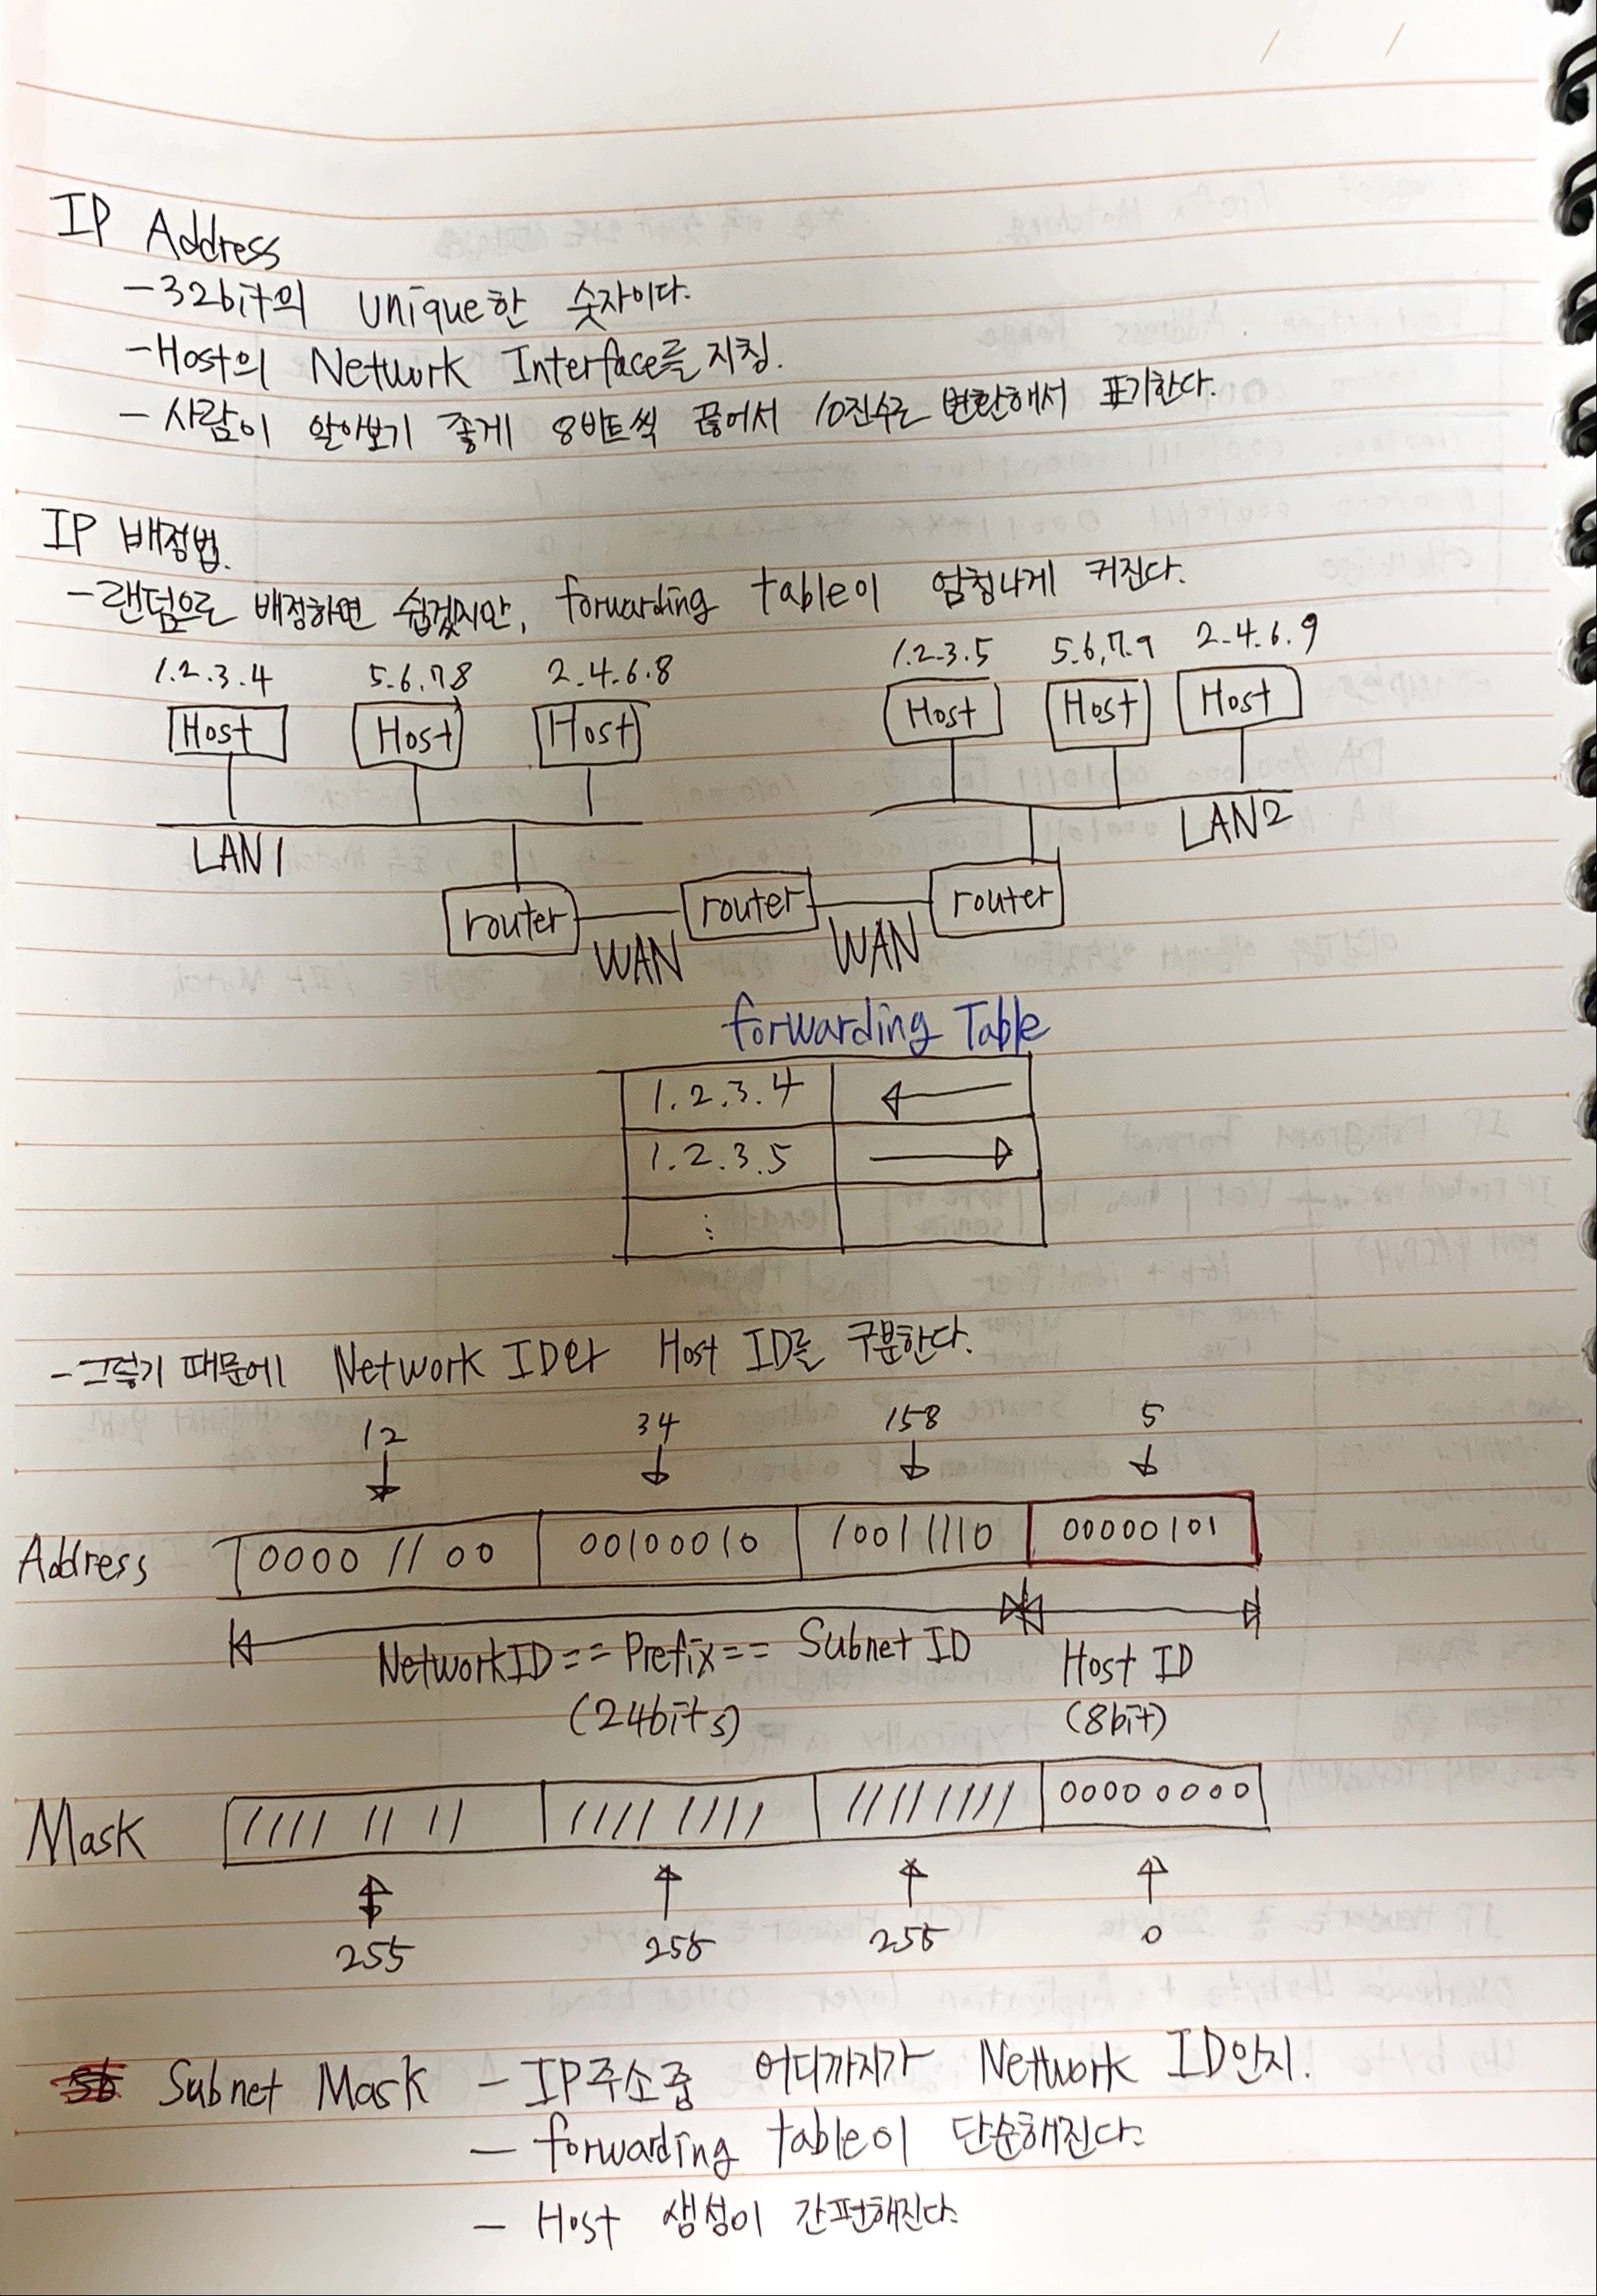 IP Address
-32bit의 unique한 숫자이다.
-Host의 Network Interface를 지칭.
- 사람이 알아보기 좋게 8비트씩 끊어서 10진수로 변환해서 표기한다.
IP 배정법.
-랜덤으로 배정하면 쉽겠지만, forwarding table이 엄청나게 커진다.
1.2.3.4 5.6.7.8 2.4.6.8 1.2.3.5 5.6.7.9 2.4.6.9
Host Host Host Host Host Host
LAN1 LAN2
router router router
WAN WAN
forwarding Table
1.2.3.4 ←
1.2.3.5 →
⋮
-그렇기 때문에 Network ID와 Host ID를 구분한다.
12 34 158 5
Address 00001100 00100010 10011110 00000101
NetworkID == Prefix == Subnet ID Host ID
(24bits) (8bit)
Mask 11111111 11111111 11111111 00000000
255 255 255 0
Subnet Mask - IP주소중 어디까지가 Network ID인지.
- forwarding table이 단순해진다.
- Host 생성이 간편해진다.